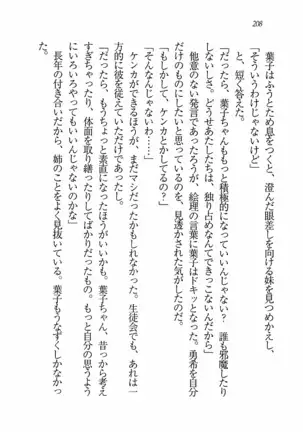 208
葉子はふうとため息をつくと、澄んだ眼差しを向ける妹を見つめかえし、
「そういうわけじゃないけど」
と、短く答えた。
「だったら、葉子ちゃんももっと積極的になっていいんじゃない？　誰も邪魔したり
しないしさ。どうせあたしたちは、独り占めなんてできっこないんだから」
他意のない発言であったろうが、絵理の言葉に葉子はドキッとなった。勇希を自分
だけのものにしたいと思っているのを、見透かされた気がしたのだ。
「もしかして、ケンカとかしてるの？」
「そんなんじゃないわ……」
ケンカができるほうが、まだマシだったかもしれなかった。生徒会でも、あれは一
方的に彼を従えていただけであった。
「だったら、もうちょっと素直になったほうがいいかも。葉子ちゃん、昔っから考え
すぎちゃったり、体面を取り繕ったりしてばかりだったもの。もっと自分の思うよう
にいろいろやってもいいんじゃないのかな」
長年の付き合いだから、姉のことをよく見抜いている。葉子もうなずくしかなかっ
た。